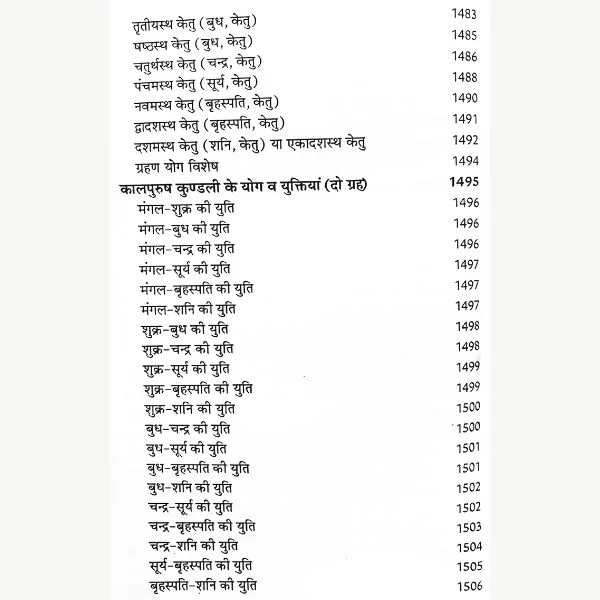 तृतीयस्थ केतु (बुध, केतु) 1483
षष्ठस्थ केतु (बुध, केतु) 1485
चतुर्थस्थ केतु (चन्द्र, केतु) 1486
पंचमस्थ केतु (सूर्य, केतु) 1488
नवमस्थ केतु (बृहस्पति, केतु) 1490
द्वादशस्थ केतु (बृहस्पति, केतु) 1491
दशमस्थ केतु (शनि, केतु) या एकादशस्थ केतु 1492
ग्रहण योग विशेष 1494
कालपुरुष कुण्डली के योग व युक्तियां (दो ग्रह) 1495
मंगल-शुक्र की युति 1496
मंगल-बुध की युति 1496
मंगल-चन्द्र की युति 1496
मंगल-सूर्य की युति 1497
मंगल-बृहस्पति की युति 1497
मंगल-शनि की युति 1497
शुक्र-बुध की युति 1498
शुक्र-चन्द्र की युति 1498
शुक्र-सूर्य की युति 1499
शुक्र-बृहस्पति की युति 1499
शुक्र-शनि की युति 1500
बुध-चन्द्र की युति 1500
बुध-सूर्य की युति 1501
बुध-बृहस्पति की युति 1501
बुध-शनि की युति 1502
चन्द्र-सूर्य की युति 1502
चन्द्र-बृहस्पति की युति 1503
चन्द्र-शनि की युति 1504
सूर्य-बृहस्पति की युति 1505
बृहस्पति-शनि की युति 1506